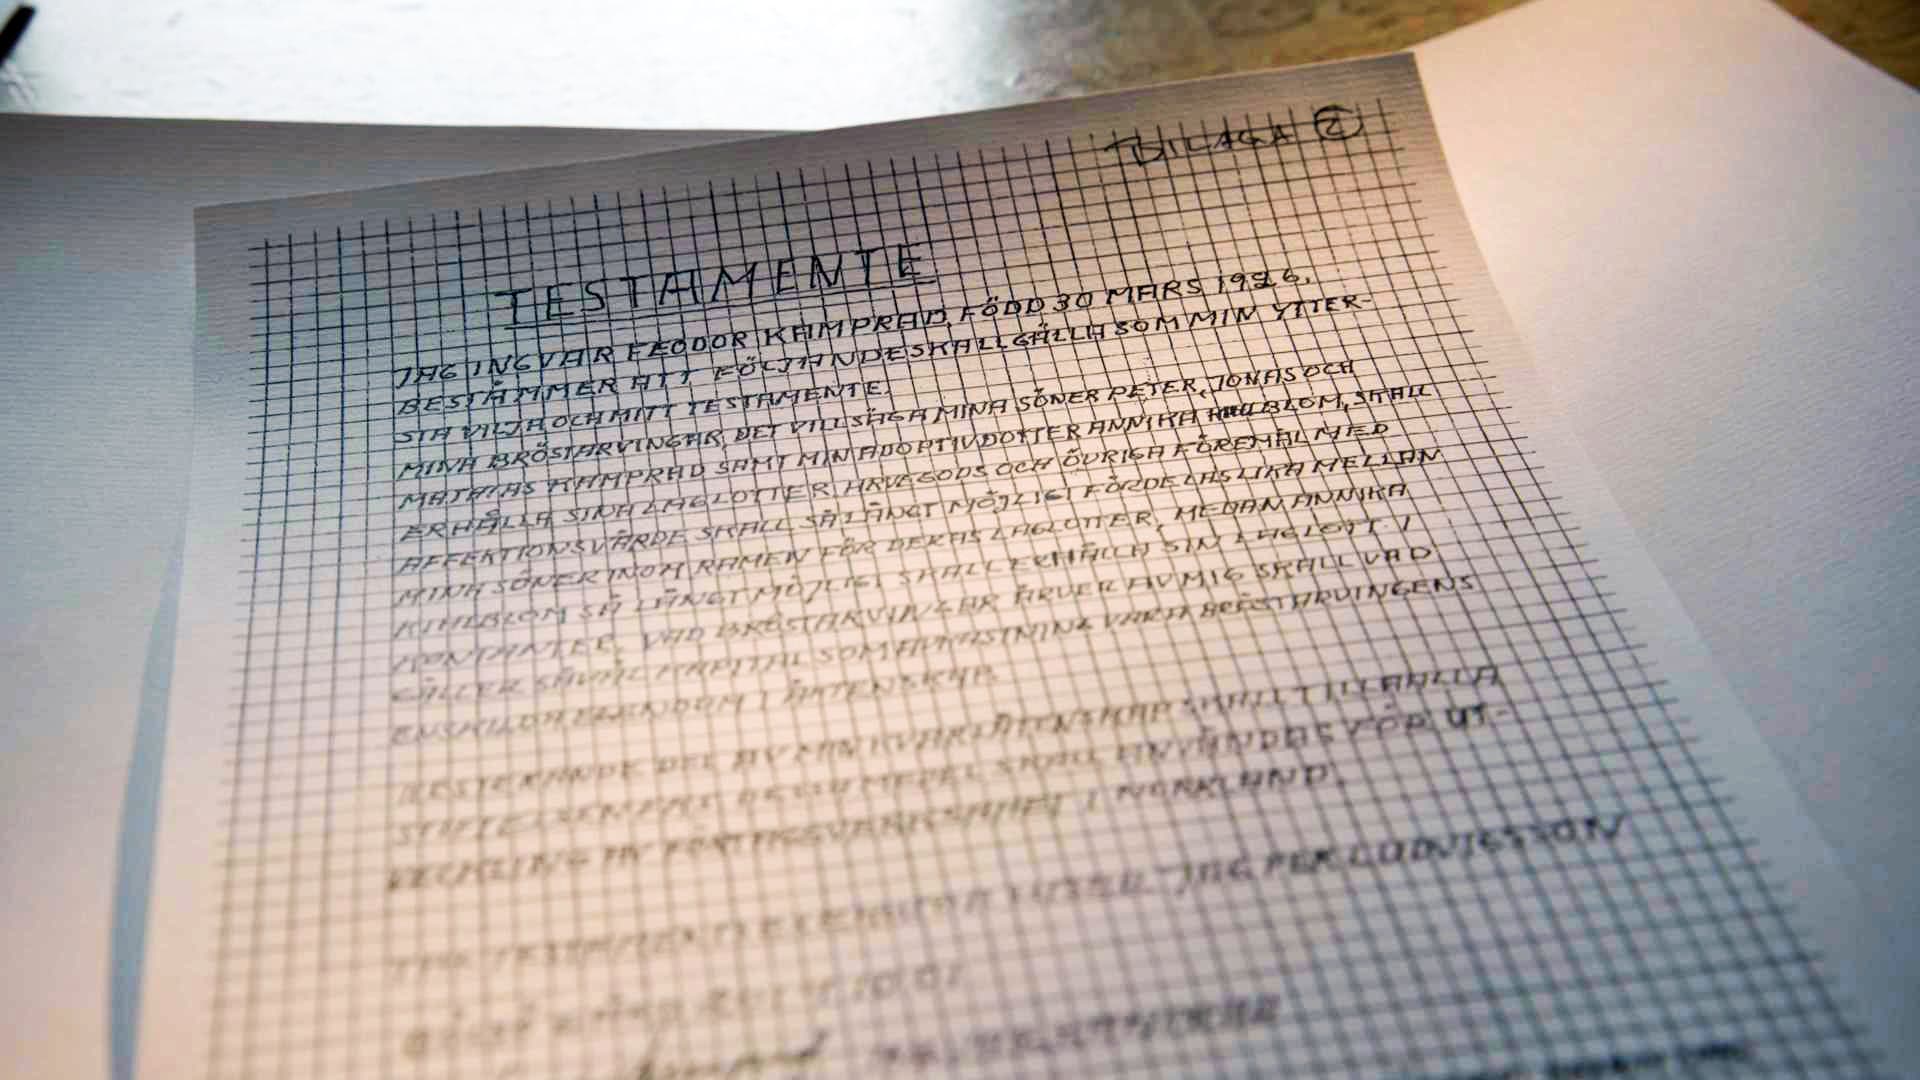 BILAGA 2
TESTAMENTE
JAG INGVAR FEODOR KAMPRAD, FÖDD 30 MARS 1926,
BESTÄMMER ATT FÖLJANDE SKALL GÄLLA SOM MIN YTTER-
STA VILJA OCH MITT TESTAMENTE.
MINA BRÖSTARVINGAR, DET VILL SÄGA MINA SÖNER PETER, JONAS OCH
MATHIAS KAMPRAD SAMT MIN ADOPTIVDOTTER ANNIKA KIHLBLOM, SKALL
ERHÅLLA SINA LAGLOTTER. ARVEGODS OCH ÖVRIGA FÖREMÅL MED
AFFEKTIONSVÄRDE SKALL SÅ LÅNGT MÖJLIGT FÖRDELAS LIKA MELLAN
MINA SÖNER INOM RAMEN FÖR DERAS LAGLOTTER, MEDAN ANNIKA
KIHLBLOM SÅ LÅNGT MÖJLIGT SKALL ERHÅLLA SIN LAGLOTT I
KONTANTER. VAD BRÖSTARVINGAR ÄRVER AV MIG SKALL VAD
GÄLLER SÅVÄL KAPITAL SOM AVKASTNING VARA BRÖSTARVINGENS
ENSKILDA EGENDOM I ÄKTENSKAP.
RESTERANDE DEL AV MIN KVARLÅTENSKAP SKALL TILLFALLA
DESSA MEDEL SKALL ANVÄNDAS FÖR UT-
VECKLING AV FÖRETAGSVERKSAMHET I NORRLAND.
JAG PER LUDVIGSSON